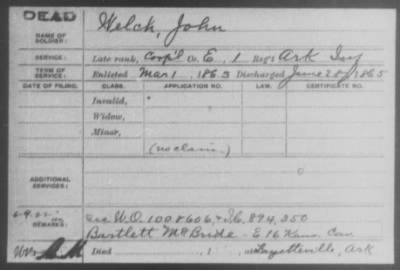 DEAD
NAME OF SOLDIER: Welch, John
SERVICE: Late rank, Corp'l Co. E, 1 Reg't Ark Inf
TERM OF SERVICE: Enlisted Mar 1, 1863 Discharged June 28, 1865
DATE OF FILING. CLASS. APPLICATION NO. LAW. CERTIFICATE NO.
Invalid,
Widow,
Minor,
(no claim.)
ADDITIONAL SERVICES:
REMARKS: W.O. 1008606, & I.C. 894,250
Bartlett McBride - E 16 Kans. Cav
Died , 1 , at Fayetteville, Ark